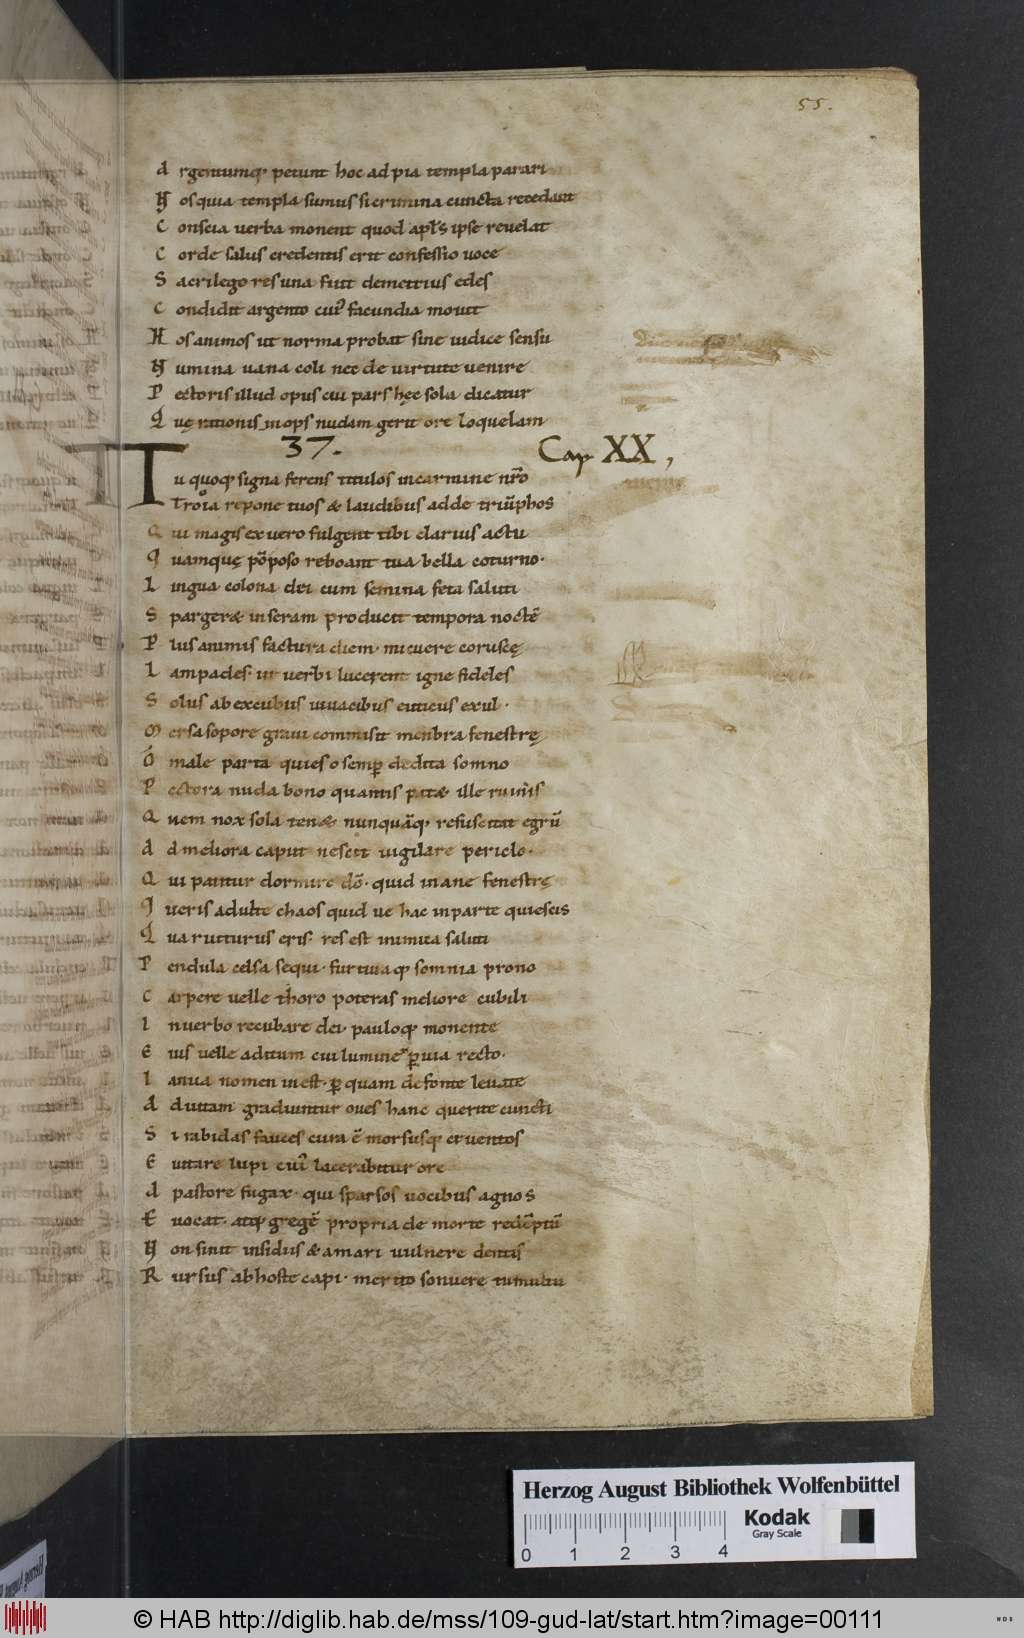 55.
A rgentumq; petunt hoc ad pia templa parari
N os quia templa sumus si crimina cuncta recedant
C onscia uerba monent quod apl's ipse reuelat
C orde salus credentis erit confessio uoce
S acrilego res una fuit demetrius edes
C ondidit argento cui' facundia mouit
H os animos ut norma probat sine iudice sensu
N umina uana coli nec de uirtute uenire
P ectoris illud opus cui pars hęc sola dicatur
Q uę rationis inops nudam gerit ore loquelam
37. Cap XX,
T u quoq; signa ferens titulos in carmine nr̄o
Troia repone tuos & laudibus adde triūphos
Q ui magis ex uero fulgent tibi clarius actu
Q uamquę p̄oposo reboant tua bella coturno.
L ingua colona dei cum semina feta saluti
S parger& in seram producit tempora noctē
P lus animis factura diem. micuere coruscę
L ampades. ut uerbi lucerent igne fideles
S olus ab excubiis uiuacibus euticus exul.
M ersa sopore graui commisit membra fenestrę
O male parta quies o semp̄ dedita somno
P ectora nuda bono quantis pat& ille ruinis
Q uem nox sola ten& nunquāq; resuscitat egrū
A d meliora caput nescit uigilare periclo.
Q ui patitur dormire dō. quid inane fenestrę
Q ueris adulte chaos quid ue hac in parte quiescis
Q ua ruiturus eris. res est inimica saluti
P endula celsa sequi. furtiuaq; somnia prono
C arpere uelle thoro poteras meliore cubili
I n uerbo recubare dei. pauloq; monente
E ius uelle aditum cui lumine p̄uia recto.
I anua nomen inest. p̄ quam de fonte leuate
A d uitam gradiuntur oues hanc querite cuncti
S i rabidas fauces cura ē morsusq; cruentos
E uitare lupi cui' lacerabitur ore
A pastore fugax. qui sparsos uocibus agnos
E uocat. atq; gregē propria de morte redēptū
N on sinit insidiis & amari uulnere dentis
R ursus ab hoste capi. merito sonuere tumultu
Herzog August Bibliothek Wolfenbüttel
Kodak
Gray Scale
0 1 2 3 4
© HAB http://diglib.hab.de/mss/109-gud-lat/start.htm?image=00111